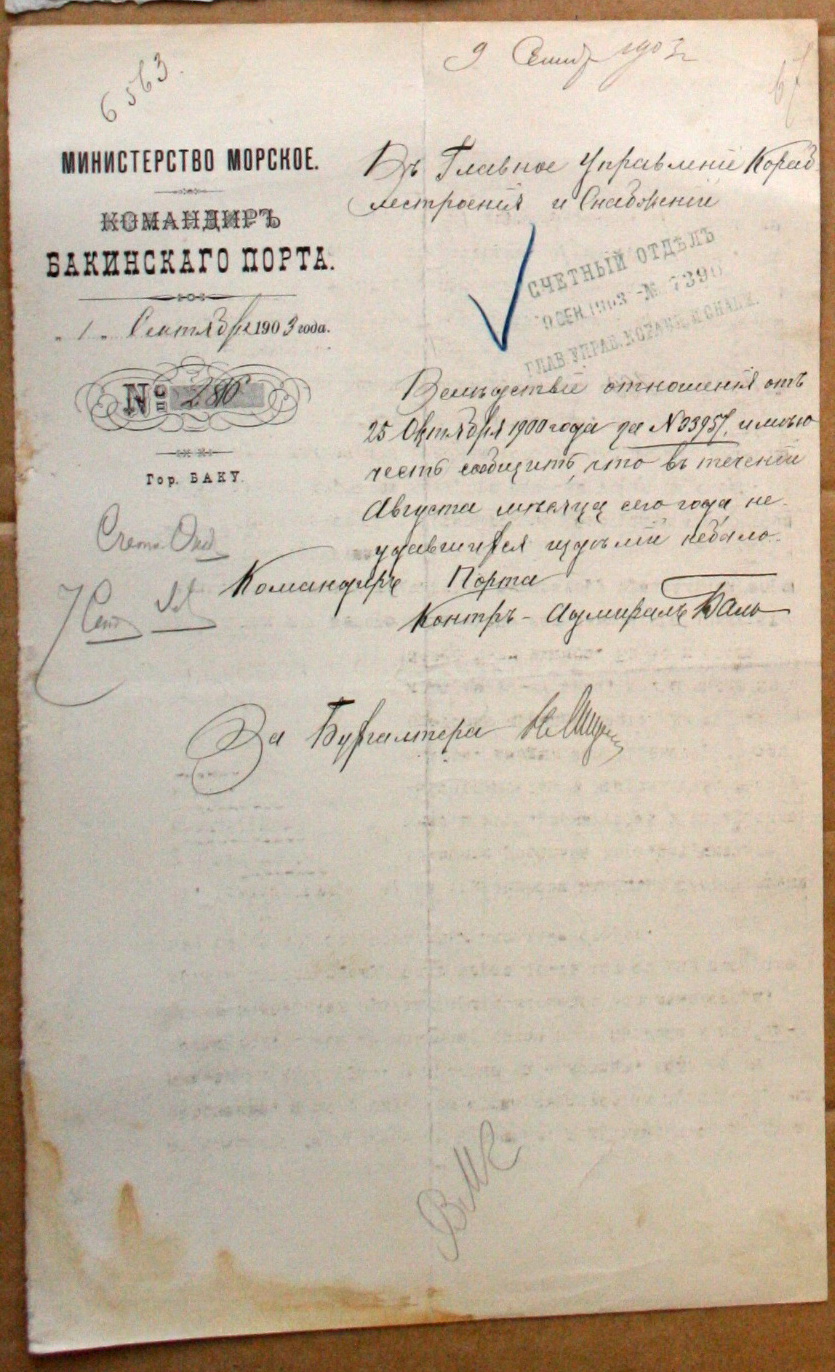 6563.
9 Сентбр 1903 г
67
МИНИСТЕРСТВО МОРСКОЕ.
КОМАНДИРЪ
БАКИНСКАГО ПОРТА.
„ 1 „ Сентября 1903 года.
№ 286
по
Гор. БАКУ.
Въ Главное Управленіе Кораб
лестроенія и Снабженій
СЧЕТНЫЙ ОТДѢЛЪ
СЕН. 1903 - № 7390
ГЛАВ. УПРАВ. КОРАБЛ. И СНАБЖ.
Вслѣдствіе отношенія отъ
25 Октября 1900 года за № 33957, имѣю
честь сообщить, что въ теченіи
Августа мѣсяца сего года не
удавшихся издѣлій небыло.
Командиръ Порта
Контръ-Адмиралъ Баль
За Бухгалтера